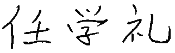 任学礼